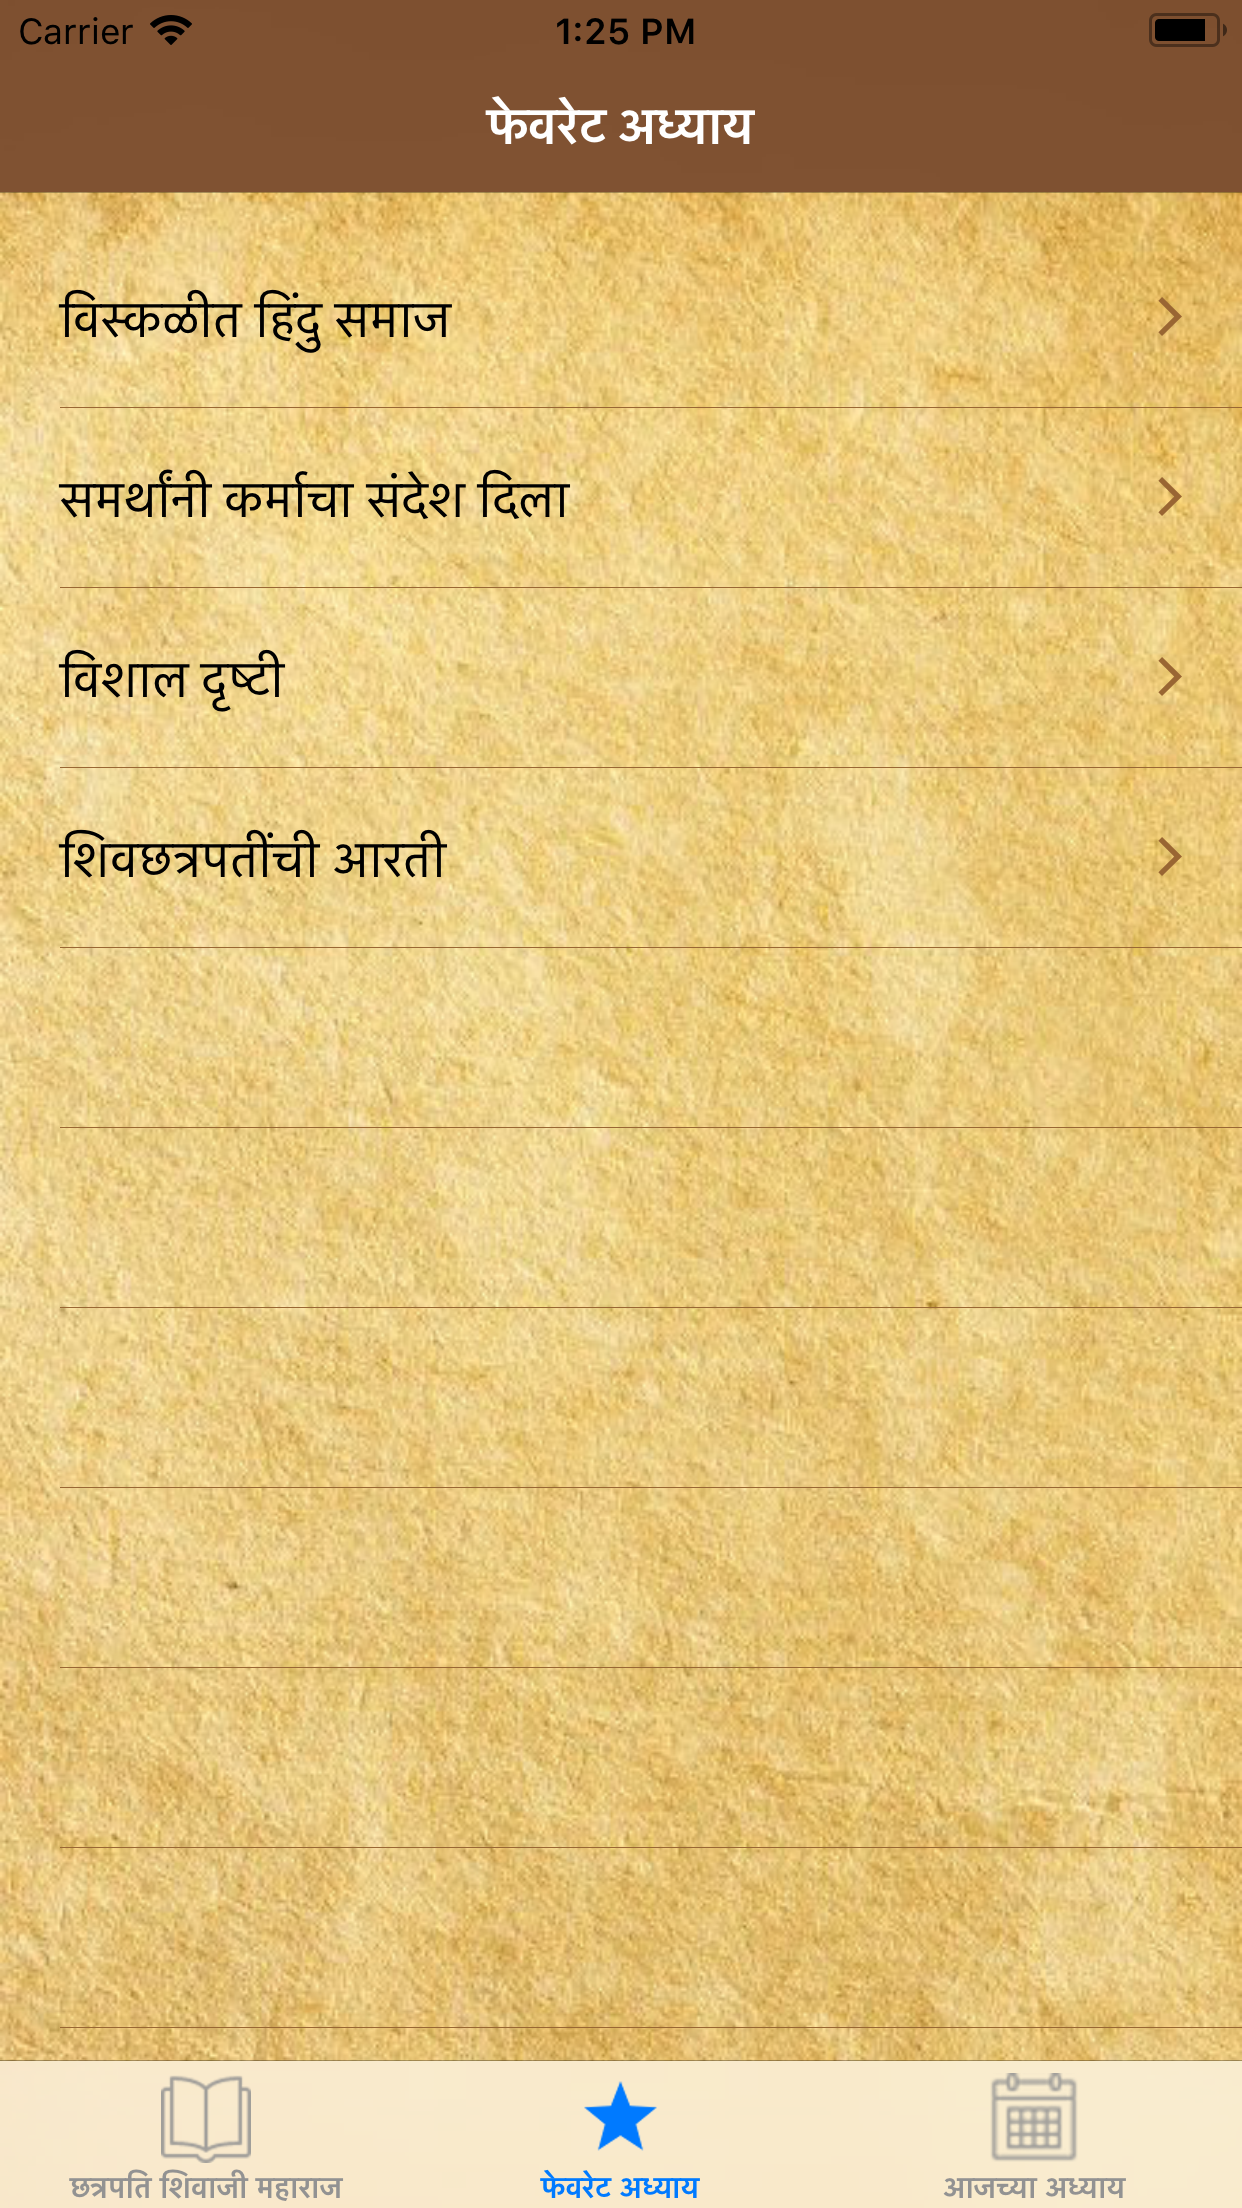 Carrier 1:25 PM
फेवरेट अध्याय
विस्कळीत हिंदु समाज
समर्थांनी कर्माचा संदेश दिला
विशाल दृष्टी
शिवछत्रपतींची आरती
छत्रपति शिवाजी महाराज फेवरेट अध्याय आजच्या अध्याय